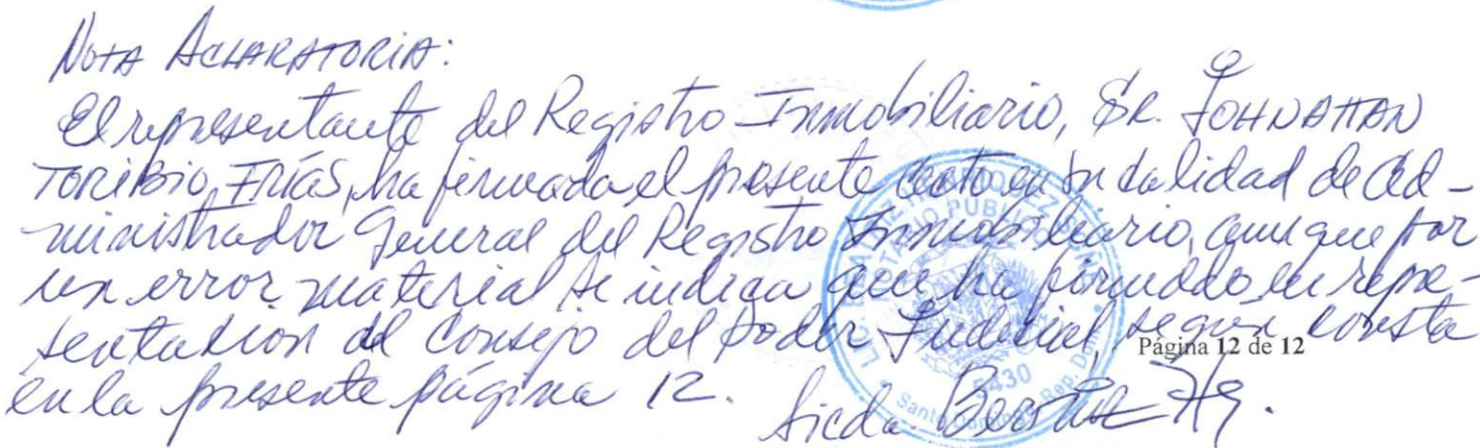 Nota Aclaratoria:
El representante del Registro Inmobiliario, Sr. Johnattan
Toribio Frías, ha firmado el presente acto en su calidad de Ad-
ministrador General del Registro Inmobiliario, aunque por
un error material se indica que ha firmado en repre-
sentación del Consejo del Poder Judicial, según consta
Página 12 de 12
en la presente página 12.
Licda.
NOTARIO PUBLICO
5430
Santo Domingo, Rep. Dom.